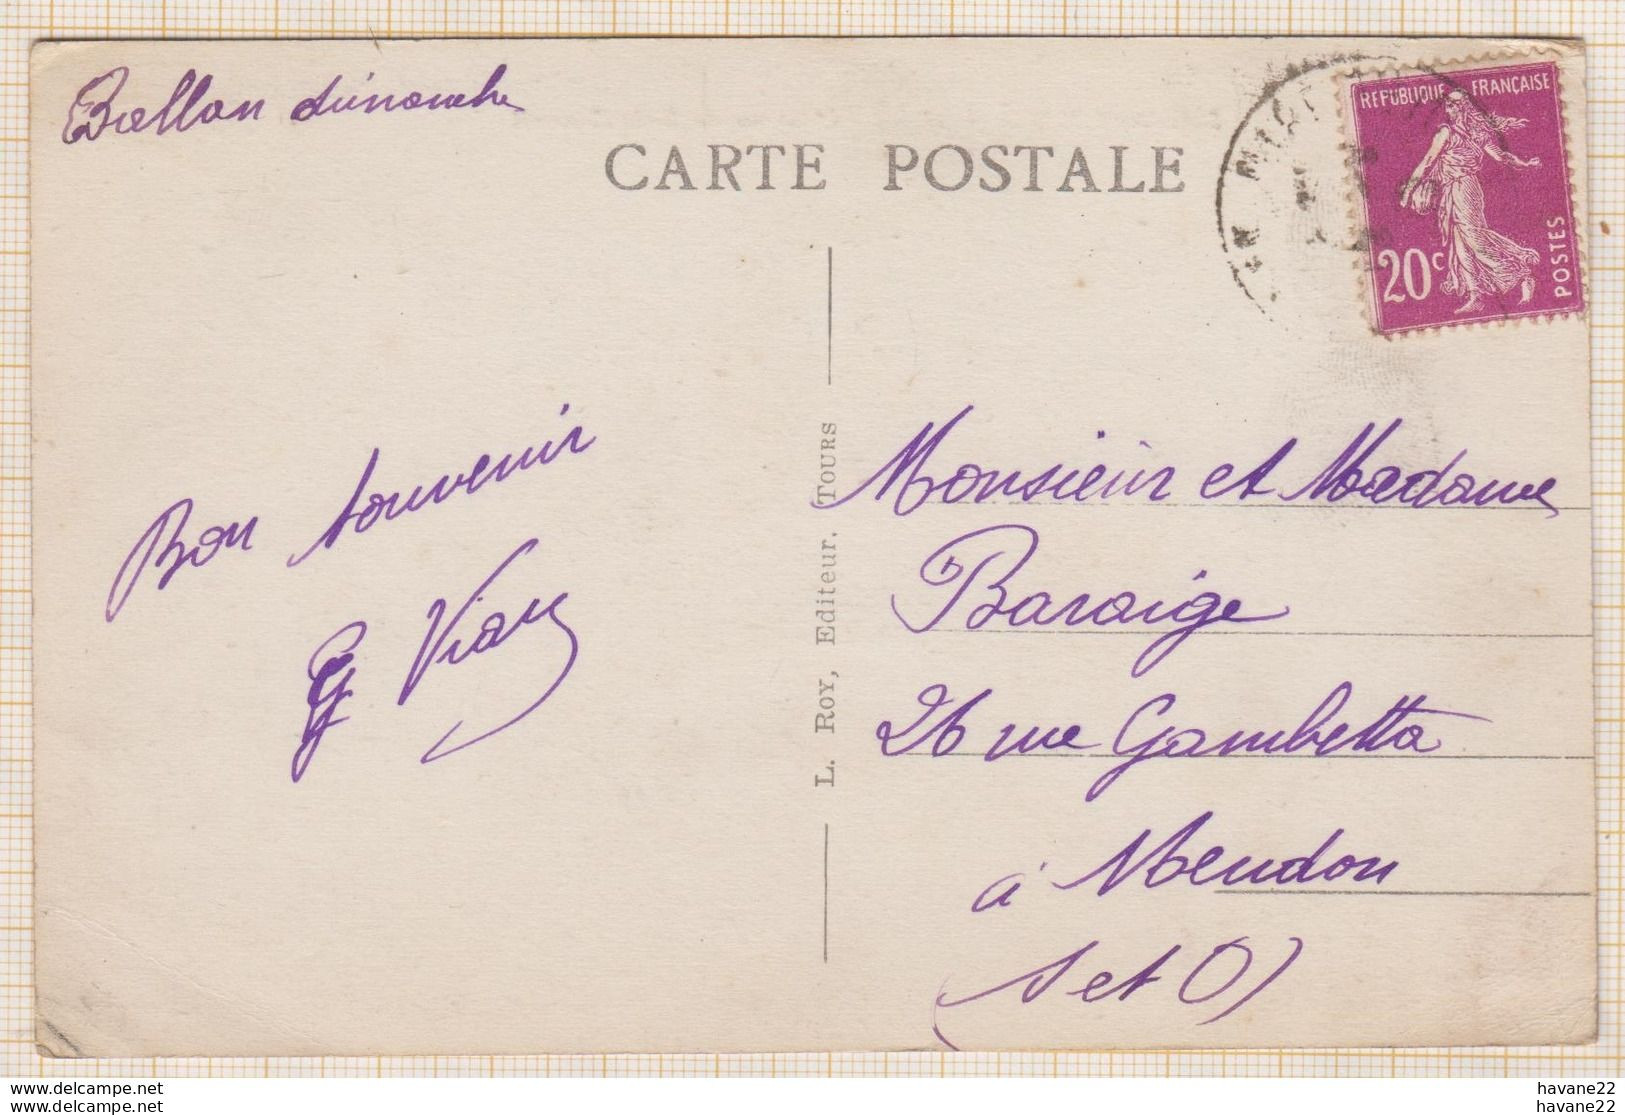 Ballan dimanche
CARTE POSTALE
REPUBLIQUE FRANÇAISE
20c
POSTES
Bon souvenir
G Viau
L. ROY, Editeur. TOURS
Monsieur et Madame
Baraige
26 rue Gambetta
à Meudon
(S et O)
delcampe.net
delcampe.net
havane22
havane22